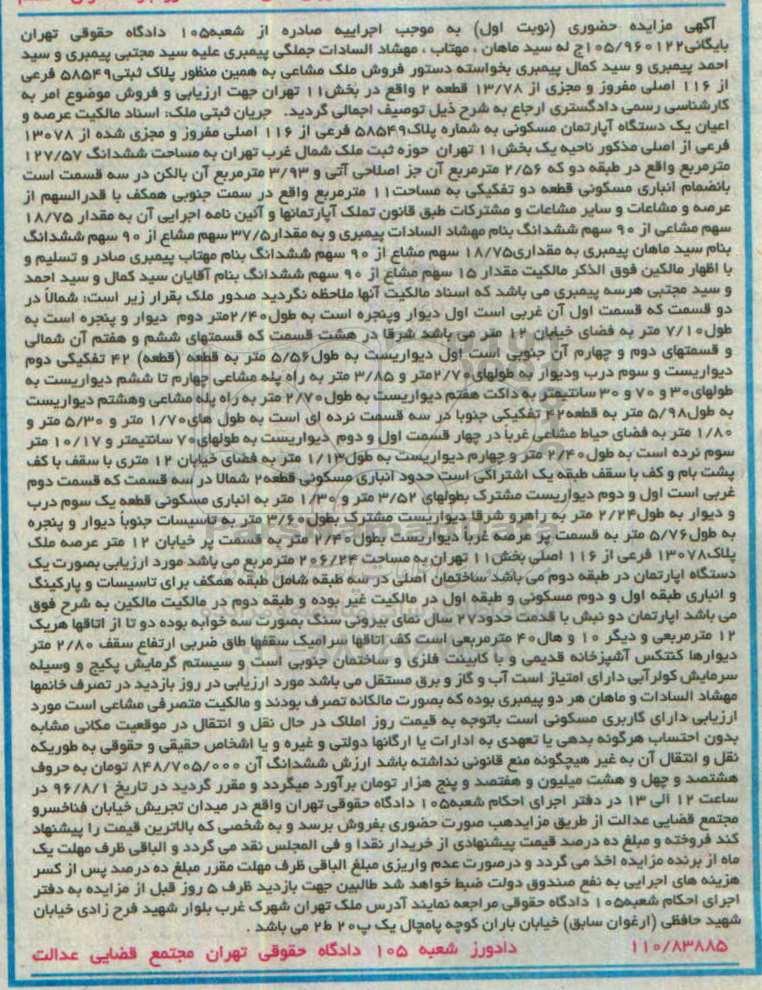 آگهی مزایده حضوری (نوبت اول) به موجب اجراییه صادره از شعبه۱۰۵ دادگاه حقوقی تهران
بایگانی۱۰۵/۹۶۰۱۲۲ج له سید ماهان ، مهتاب ، مهشاد السادات جملگی پیمبری علیه سید مجتبی پیمبری و سید
احمد پیمبری و سید کمال پیمبری بخواسته دستور فروش ملک مشاعی به همین منظور پلاک ثبتی۵۸۵۴۹ فرعی
از ۱۱۶ اصلی مفروز و مجزی از ۱۳/۷۸ قطعه ۲ واقع در بخش۱۱ تهران جهت ارزیابی و فروش موضوع امر به
کارشناسی رسمی دادگستری ارجاع به شرح ذیل توصیف اجمالی گردید. جریان ثبتی ملک: اسناد مالکیت عرصه و
اعیان یک دستگاه آپارتمان مسکونی به شماره پلاک۵۸۵۴۹ فرعی از ۱۱۶ اصلی مفروز و مجزی شده از ۱۳۰۷۸
فرعی از اصلی مذکور ناحیه یک بخش۱۱ تهران حوزه ثبت ملک شمال غرب تهران به مساحت ششدانگ ۱۲۷/۵۷
مترمربع واقع در طبقه دو که ۲/۵۶ مترمربع آن جز اصلاحی آتی و ۳/۹۳ مترمربع آن بالکن در سه قسمت است
بانضمام انباری مسکونی قطعه دو تفکیکی به مساحت۱۱ مترمربع واقع در سمت جنوبی همکف با قدرالسهم از
عرصه و مشاعات و سایر مشاعات و مشترکات طبق قانون تملک آپارتمانها و آئین نامه اجرایی آن به مقدار ۱۸/۷۵
سهم مشاعی از ۹۰ سهم ششدانگ بنام مهشاد السادات پیمبری و به مقدار۳۷/۵ سهم مشاع از ۹۰ سهم ششدانگ
بنام سید ماهان پیمبری به مقداری۱۸/۷۵ سهم مشاع از ۹۰ سهم ششدانگ بنام مهتاب پیمبری صادر و تسلیم و
با اظهار مالکین فوق الذکر مالکیت مقدار ۱۵ سهم مشاع از ۹۰ سهم ششدانگ بنام آقایان سید کمال و سید احمد
و سید مجتبی هرسه پیمبری می باشد که اسناد مالکیت آنها ملاحظه نگردید صدور ملک بقرار زیر است: شمالاً در
دو قسمت که قسمت اول آن غربی است اول دیوار وپنجره است به طول۲/۴۰متر دوم دیوار و پنجره است به
طول۷/۱۰ متر به فضای خیابان ۱۲ متر می باشد شرقاً در هشت قسمت که قسمتهای ششم و هفتم آن شمالی
و قسمتهای دوم و چهارم آن جنوبی است اول دیواریست به طول۵/۵۶ متر به قطعه (قطعه) ۴۲ تفکیکی دوم
دیواریست و سوم درب ودیوار به طولهای۲/۷۰متر و ۳/۸۵ متر به راه پله مشاعی چهارم تا ششم دیواریست به
طولهای۳۰ و ۷۰ و ۳۰ سانتیمتر به داکت هفتم دیواریست به طول۲/۷۰ متر به راه پله مشاعی وهشتم دیواریست
به طول۵/۹۸ متر به قطعه۴۲ تفکیکی جنوبا در سه قسمت نرده ای است به طول های۱/۷۰ متر و ۵/۳۰ متر و
۱/۸۰ متر به فضای حیاط مشاعی غرباً در چهار قسمت اول و دوم دیواریست به طولهای۷۰ سانتیمتر و ۱۰/۱۷ متر
سوم نرده است به طول۲/۴۰ متر و چهارم دیواریست به طول۱/۱۳ متر به فضای خیابان ۱۲ متری با سقف با کف
پشت بام و کف با سقف طبقه یک اشتراکی است حدود انباری مسکونی قطعه۲ شمالا در سه قسمت که قسمت دوم
غربی است اول و دوم دیواریست مشترک بطولهای ۳/۵۲ متر و ۱/۳۰ متر به انباری مسکونی قطعه یک سوم درب
و دیوار به طول۲/۲۴ متر به راهرو شرقا دیواریست مشترک بطول۳/۶۰ متر به تاسیسات جنوباً دیوار و پنجره
به طول۵/۷۶ متر به قسمت پر عرصه غرباً دیواریست بطول۲/۴۰ متر به قسمت پر خیابان ۱۲ متر عرصه ملک
پلاک۱۳۰۷۸ فرعی از ۱۱۶ اصلی بخش۱۱ تهران به مساحت ۲۰۶/۲۴ مترمربع می باشد مورد ارزیابی بصورت یک
دستگاه اپارتمان در طبقه دوم می باشد ساختمان اصلی در سه طبقه شامل طبقه همکف برای تاسیسات و پارکینگ
و انباری طبقه اول و دوم مسکونی و طبقه اول در مالکیت غیر بوده و طبقه دوم در مالکیت مالکین به شرح فوق
می باشد اپارتمان دو نبش با قدمت حدود۲۷ سال نمای بیرونی سنگ بصورت سه خوابه بوده دو تا از اتاقها هریک
۱۲ مترمربعی و دیگر ۱۰ و هال۴۰ مترمربعی است کف اتاقها سرامیک سقفها طاق ضربی ارتفاع سقف ۲/۸۰ متر
دیوارها کنتکس آشپزخانه قدیمی و با کابینت فلزی و ساختمان جنوبی است و سیستم گرمایش پکیج و وسیله
سرمایش کولرآبی دارای امتیاز است آب و گاز و برق مستقل می باشد مورد ارزیابی در روز بازدید در تصرف خانمها
مهشاد السادات و ماهان هر دو پیمبری بوده که بصورت مالکانه تصرف بودند و مالکیت متصرفی مشاعی است مورد
ارزیابی دارای کاربری مسکونی است باتوجه به قیمت روز املاک در حال نقل و انتقال در موقعیت مکانی مشابه
بدون احتساب هرگونه بدهی یا تعهدی به ادارات یا ارگانها دولتی و غیره و یا اشخاص حقیقی و حقوقی به طوریکه
نقل و انتقال آن به غیر هیچگونه منع قانونی نداشته باشد ارزش ششدانگ آن ۸۴۸/۷۰۵/۰۰۰ تومان به حروف
هشتصد و چهل و هشت میلیون و هفتصد و پنج هزار تومان برآورد میگردد و مقرر گردید در تاریخ ۹۶/۸/۱ در
ساعت ۱۲ الی ۱۳ در دفتر اجرای احکام شعبه۱۰۵ دادگاه حقوقی تهران واقع در میدان تجریش خیابان فناخسرو
مجتمع قضایی عدالت از طریق مزایدهب صورت حضوری بفروش برسد و به شخصی که بالاترین قیمت را پیشنهاد
کند فروخته و مبلغ ده درصد قیمت پیشنهادی از خریدار نقدا و فی المجلس نقد می گردد و الباقی ظرف مهلت یک
ماه از برنده مزایده اخذ می گردد و درصورت عدم واریزی مبلغ الباقی ظرف مهلت مقرر مبلغ ده درصد پس از کسر
هزینه های اجرایی به نفع صندوق دولت ضبط خواهد شد طالبین جهت بازدید ظرف ۵ روز قبل از مزایده به دفتر
اجرای احکام شعبه۱۰۵ دادگاه حقوقی مراجعه نمایند آدرس ملک تهران شهرک غرب بلوار شهید فرح زادی خیابان
شهید حافظی (ارغوان سابق) خیابان باران کوچه پامچال یک پ۲۰ ط۲ می باشد .
۱۱۰/۸۳۸۸۵ دادورز شعبه ۱۰۵ دادگاه حقوقی تهران مجتمع قضایی عدالت